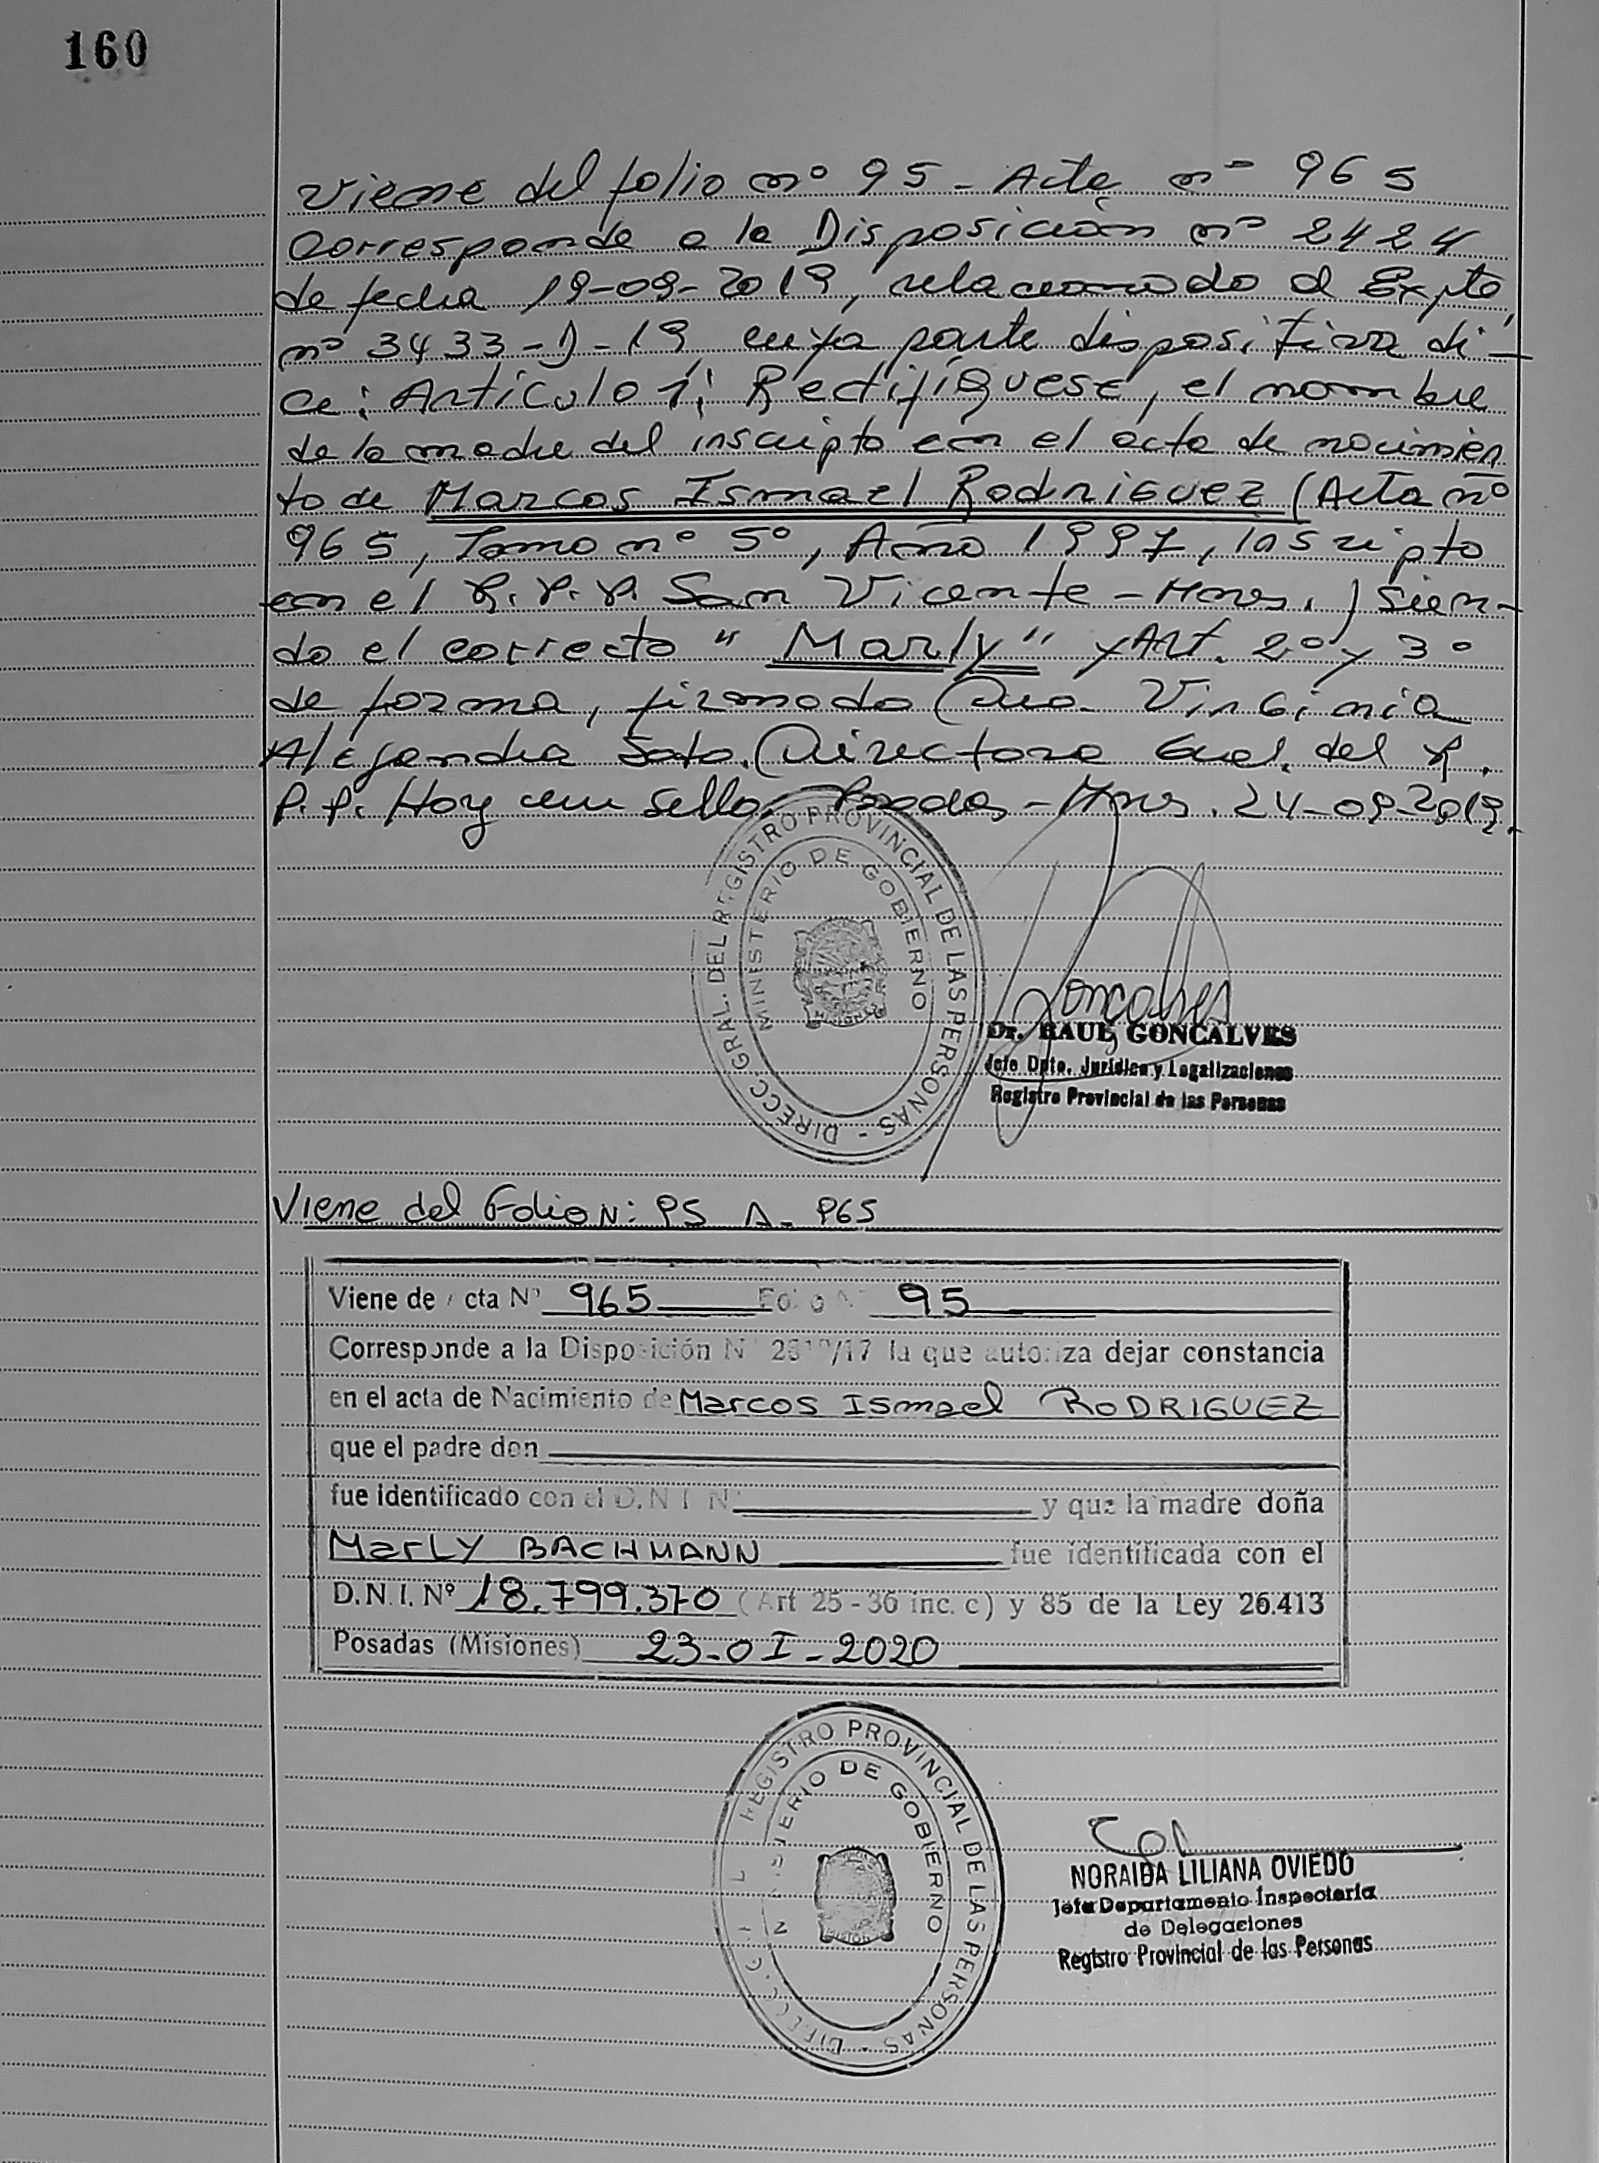 160
Viene del folio nº 95 - Acta nº 965
Corresponde a la Disposición nº 2424
de fecha 19-09-2019, relacionado al Expte
nº 3433-D-19, cuya parte dispositiva di-
ce: Artículo 1: Rectifíquese, el nombre
de la madre del inscripto en el acta de nacimien
to de Marcos Ismael Rodriguez (Acta nº
965, Tomo nº 5º, Año 1997, inscripto
en el R.P.P. San Vicente - Mnes.) sien-
do el correcto "Marly" y Art. 2º y 3º
de forma, firmado Dra. Virginia
Alejandra Soto. Directora Gral. del R.
P.P. Hoy Posdas - Mnes. 24-09-2019.
DIRECC. GRAL. DEL REGISTRO PROVINCIAL DE LAS PERSONAS -
MINISTERIO DE GOBIERNO
MISIONES
Goncalves
Dr. RAUL GONCALVES
Jefe Dpto. Jurídica y Legalizaciones
Registro Provincial de las Personas
Viene del Folio N: 95 A- 965
Viene de cta Nº 965 Folio Nº 95
Corresponde a la Disposición N /17 la que autoriza dejar constancia
en el acta de Nacimiento de Marcos Ismael RODRIGUEZ
que el padre don
fue identificado con el D.N.I. Nº y que la madre doña
MarLY BACHMANN fue identificada con el
D.N.I. Nº 18.799.370 (Art 25 - 36 inc. c) y 85 de la Ley 26.413
Posadas (Misiones) 23-0I-2020
REGISTRO PROVINCIAL DE LAS PERSONAS -
DE GOBIERNO
NORAIDA LILIANA OVIEDO
Jefa Departamento Inspectoría
de Delegaciones
Registro Provincial de las Personas